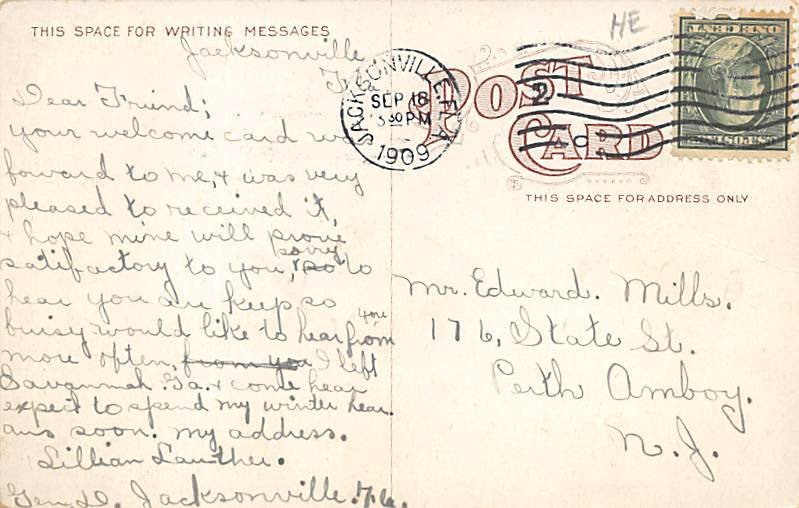 THIS SPACE FOR WRITING MESSAGES
Jacksonville
Dear Friend;
your welcome card
foward to me, & was very
pleased to received it,
& hope mine will prove
satifactory to you, sorry to
hear you are keep so
busy would like to hear from
more often, from you I left
Savannah. Ga. & come hear
expect to spend my winter hear.
ans soon. my address.
Lillian
Gen. D. Jacksonville. Fla.
HE
JACKSONVILLE, FLA.
SEP 18
3 30 PM
1909
2
POST CARD
THIS SPACE FOR ADDRESS ONLY
Mr. Edward. Mills.
176, State St.
Perth Amboy.
N. J.